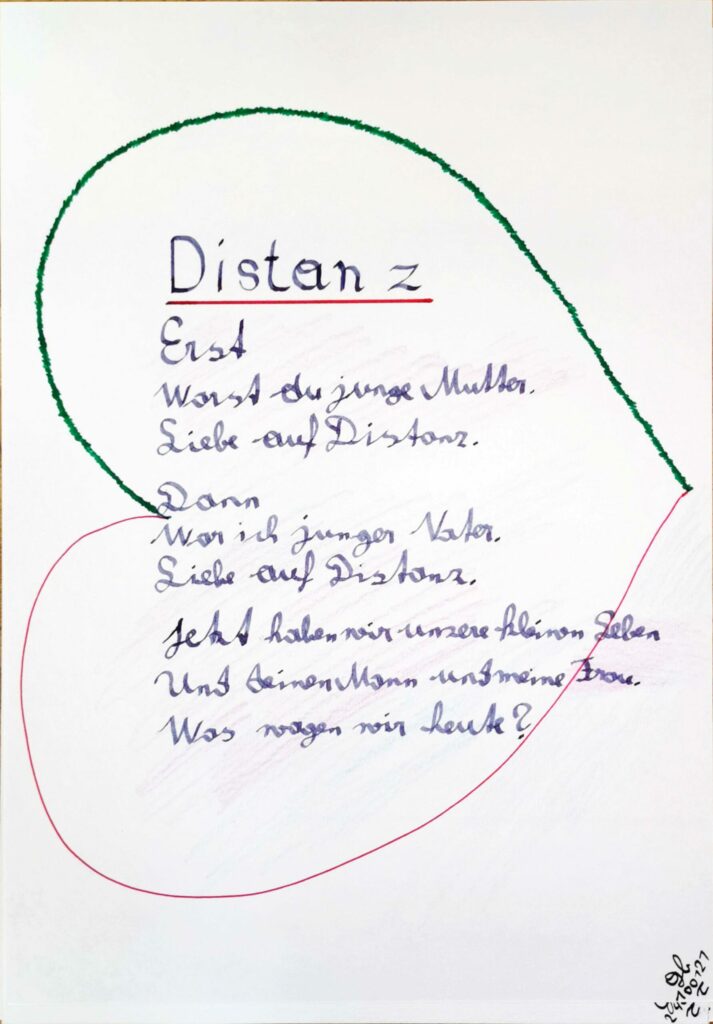 Distanz
Erst
Warst du junge Mutter.
Liebe auf Distanz.
Dann
War ich junger Vater.
Liebe auf Distanz.
Jetzt haben wir unsere kleinen Leben
Und deinen Mann und meine Frau.
Was wagen wir heute?